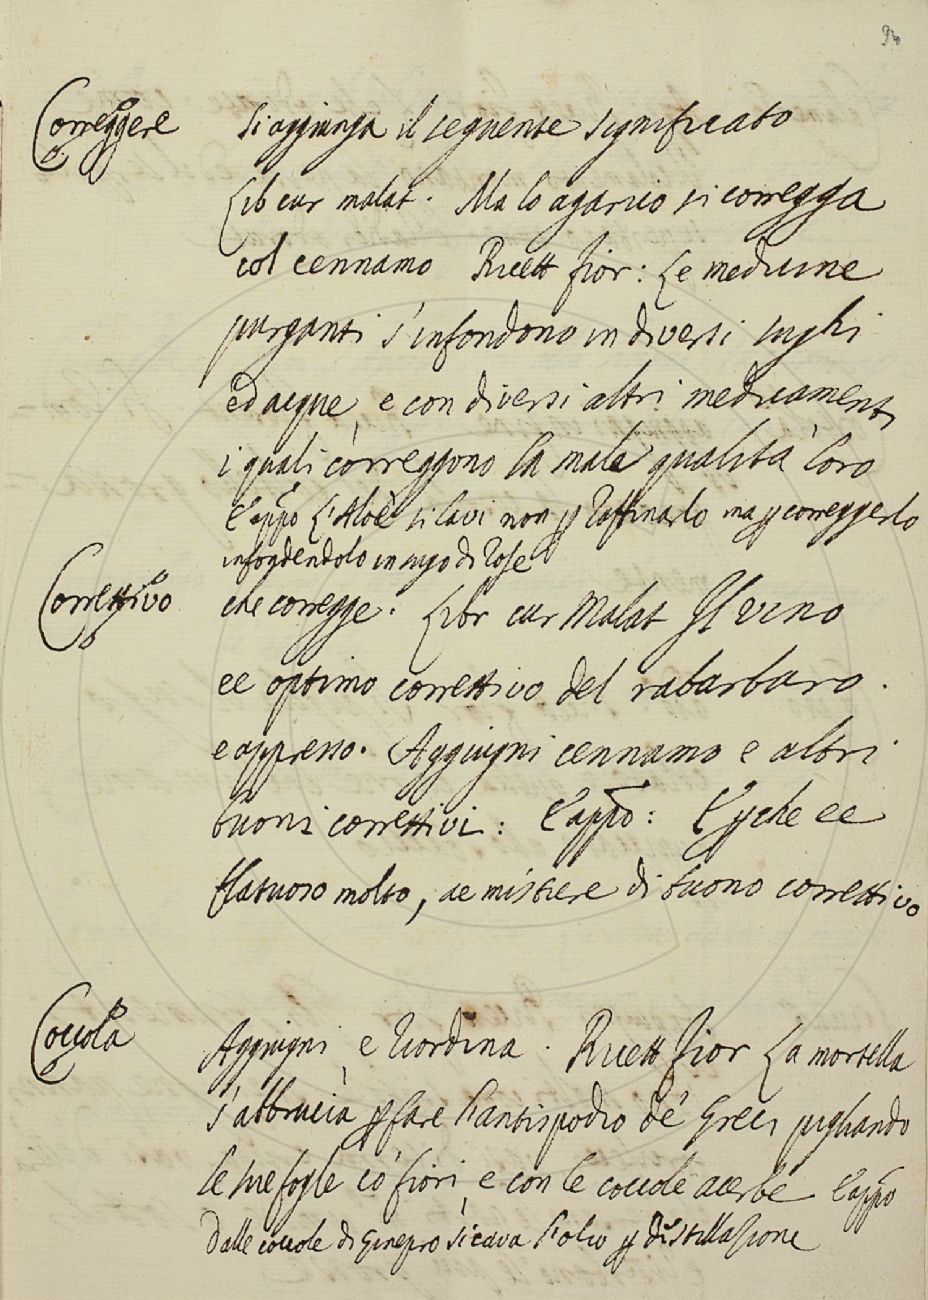 Correggere Si aggiunga il seguente significato
Lib cur malat. Ma lo agarico si corregga
col cennamo Ricett fior: Le medicine
purganti s'infondono in diversi sughi
ed acque, e con diversi altri medicamenti
i quali correggono la mala qualità loro
E appo L'Aloè si lavi non p raffinarlo ma p correggerlo
infondendolo in sugo di rose
Correttivo che corregge. Libr cur Malat Il vino
ee optimo correttivo del rabarbaro.
e appresso. Aggiugni cennamo e altri
buoni correttivi: E appo: E pche ee
flatuoso molto, ae mistiere di buono correttivo
Coccola Aggiugni e Riordina. Ricett fior La mortella
s'abbrucia p fare l'antispodio de' Greci pigliando
le sue foglie co' fiori, e con le coccole acerbe E appo
Dalle coccole di Ginepro si cava l'olio p distillazione